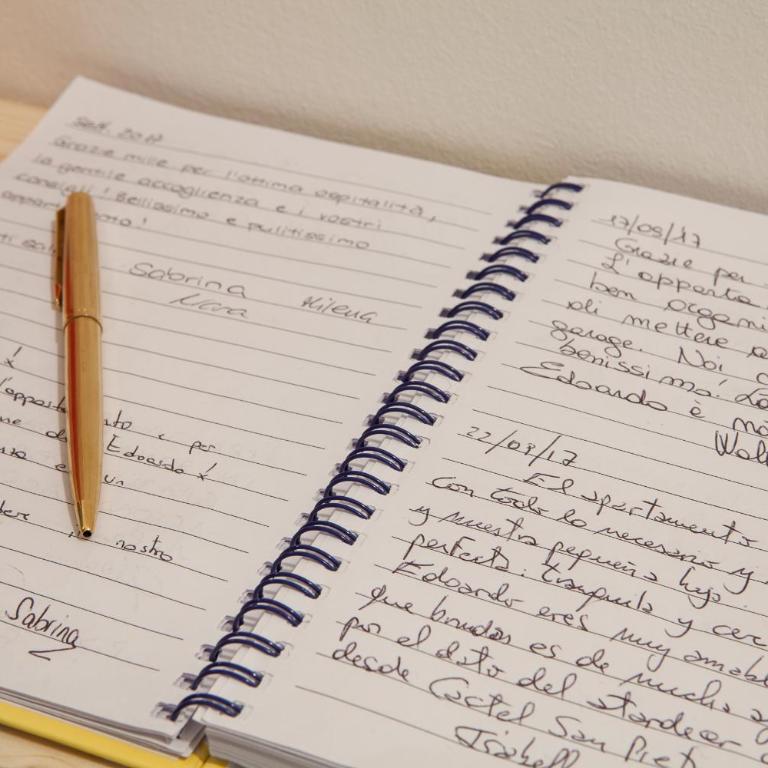 Sett. 2017
Grazie mille per l'ottima ospitalità,
la gentile accoglienza e i vostri
consigli! Bellissimo e pulitissimo
Sabrina Milena
Mara
l'appart to e per
Edoardo!
e un
nostro
Sabrina
17/08/17
Grazie per
L'apparta
ben organi
di mettere
garage. Noi
benissimo!
Edoardo è mo
22/08/17
El apartamento
con todo lo necesario y
y nuestra pequeña hija.
perfecta: tranquila y cerc
Edoardo eres muy amabl
que brindas es de mucha
por el dato del atardecer
desde Castel San Piet